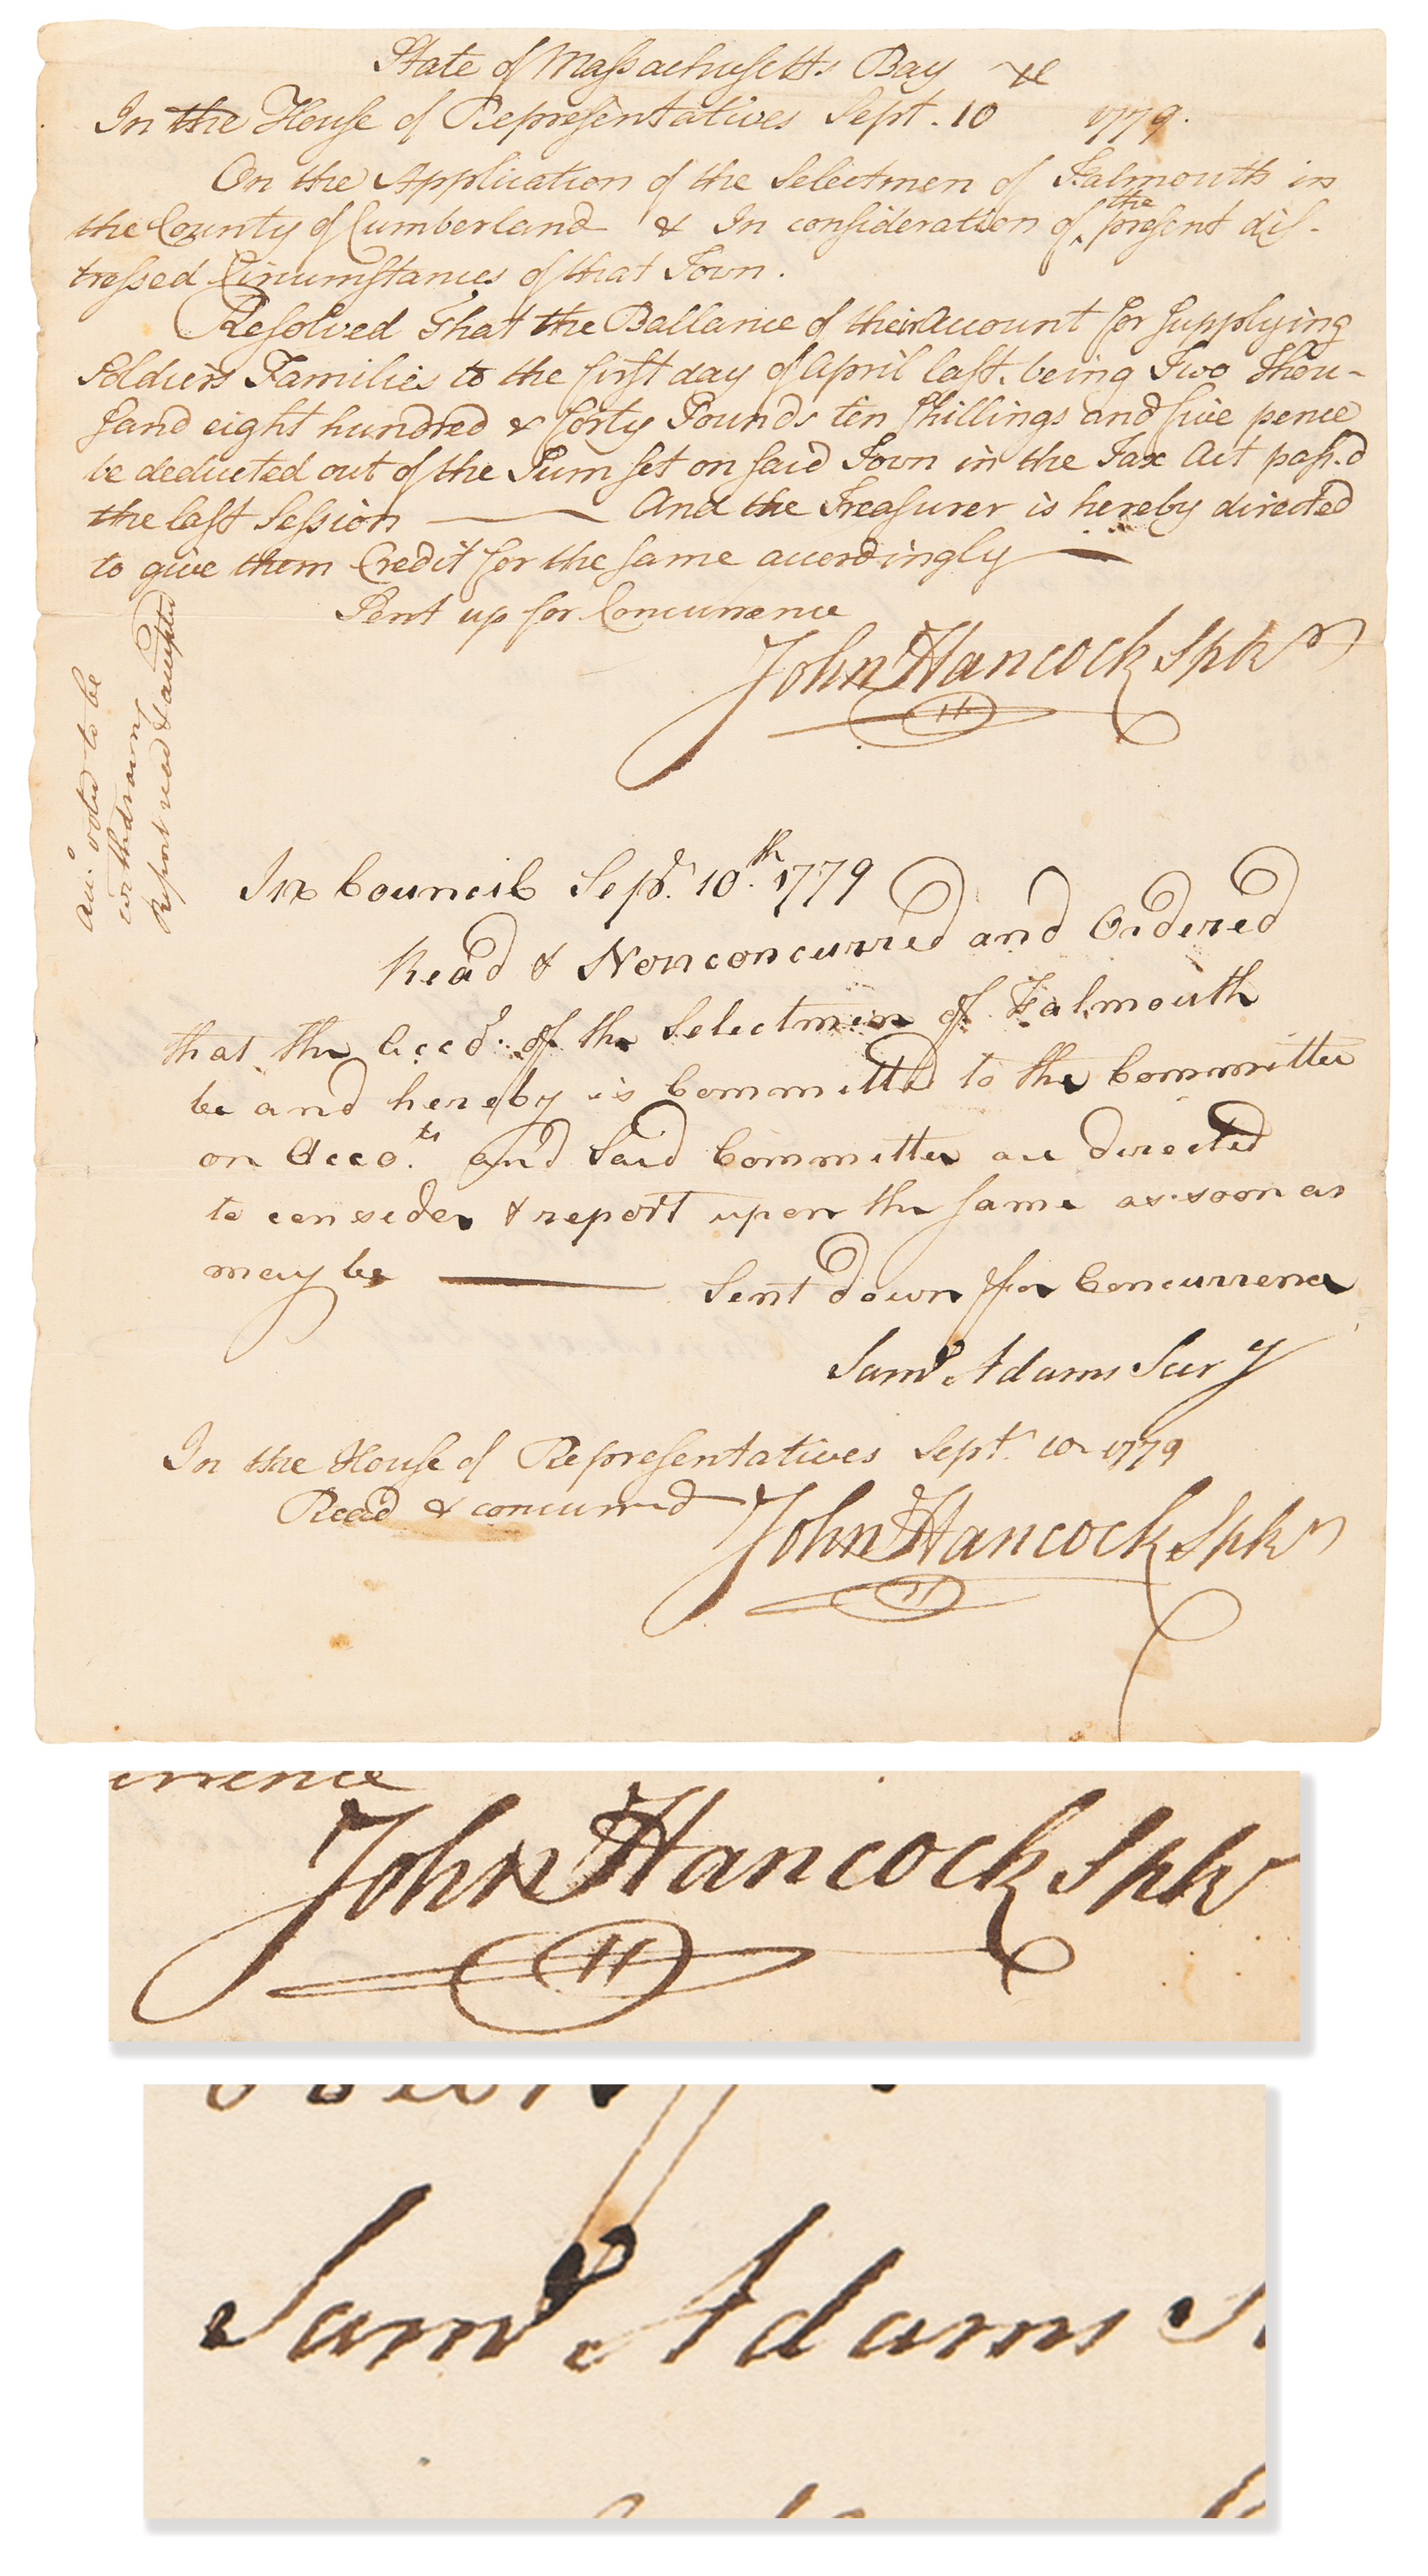 State of Massachusetts Bay
In the House of Representatives Sept. 10 1779.
On the Application of the Selectmen of Falmouth in
the County of Cumberland & In consideration of the present dis-
tressed Circumstances of that Town.
Resolved That the Ballance of their Account for supplying
Soldiers Families to the first day of April last. being Two Thou-
sand eight hundred & forty Pounds ten shillings and five pence
be deducted out of the Sum set on said Town in the Tax Act pass.d
the last Session — And the Treasurer is hereby directed
to give them Credit for the same accordingly —
Sent up for Concurrence
John Hancock Spkr
Acc.o voted to be
withdrawn
Report read & accepted
In Council Sept. 10th. 1779
Read & Nonconcurred and Ordered
that the Acco.t of the Selectmen of Falmouth
be and hereby is Committed to the Committee
on Acco.ts and said Committee are directed
to consider & report upon the same as soon as
may be — Sent down for Concurrence
Saml Adams Secry
In the House of Representatives Sept. 10 1779
Read & concurred
John Hancock Spkr
urrence
John Hancock Spkr
Saml Adams S